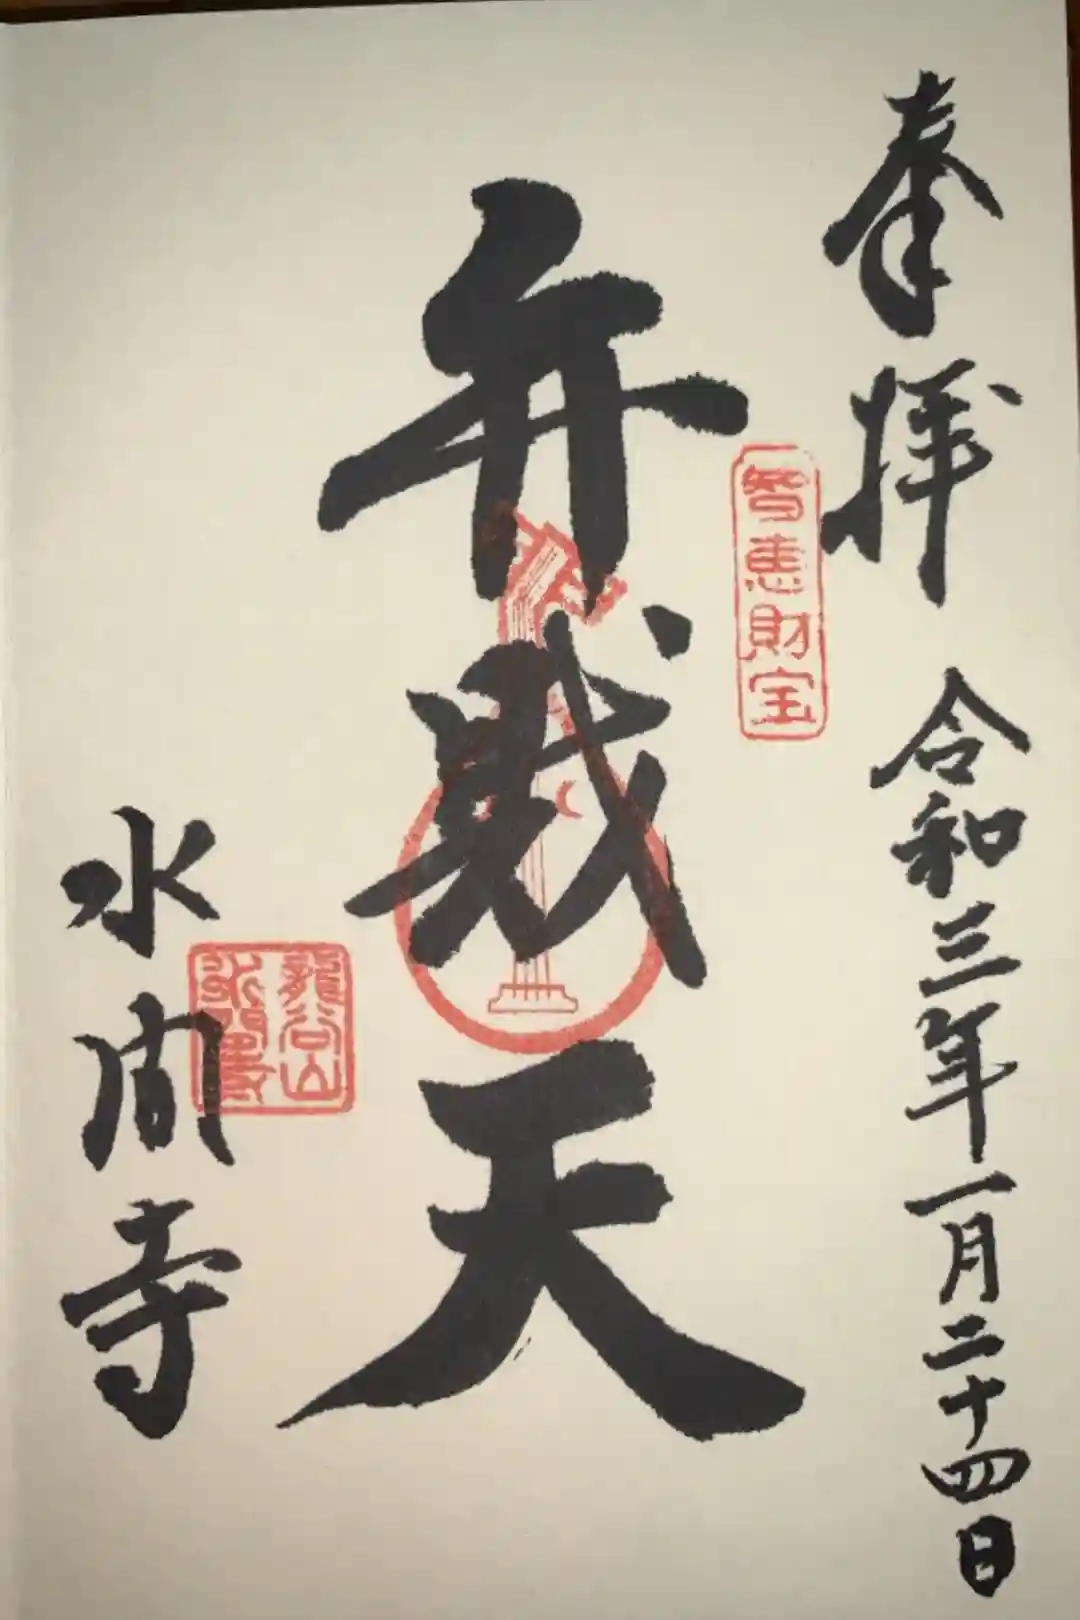 奉拝 令和三年一月二十四日
智恵財宝
弁財天
龍谷山
水間寺
水間寺